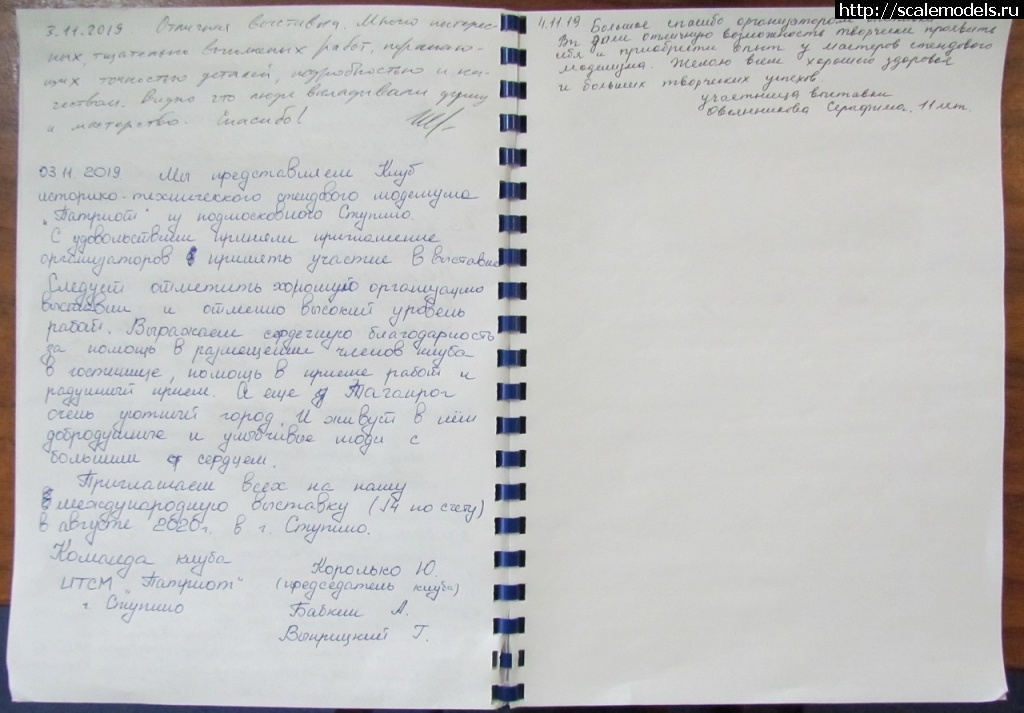 http://scalemodels.ru
3.11.2019 Отличная выставка. Много интерес-
ных, тщательно выполненых работ,
точностью деталей, подробностью и ка-
чеством. Видно что люди вкладывали душу
и мастерство. Спасибо!
03.11.2019 Мы представляем Клуб
историко-технического стендового моделизма
"Патриот" из подмосковного Ступино.
С удовольствием приняли приглашение
организаторов принять участие в выставке
Следует отметить хорошую организацию
выставки и отменно высокий уровень
работ. Выражаем сердечную благодарность
за помощь в размещении членов клуба
в гостинице, помощь в приеме работ и
радушный прием. А еще Таганрог
очень уютный город. И живут в нём
добродушные и улыбчивые люди с
большим сердцем.
Приглашаем всех на нашу
международную выставку (14 по счету)
в августе 2020г. в г. Ступино.
Команда клуба
ИТСМ "Патриот"
г. Ступино
Королько Ю.
(председатель клуба)
Бабкин А.
Выприцкий Г.
4.11.19 Большое спасибо организаторам выставки
Вы дали отличную возможность творчески проявить
себя и приобрести опыт у мастеров стендового
моделизма. Желаю всем хорошего здоровья
и больших творческих успехов.
участница выставки
Овсянникова Серафима. 11 лет.